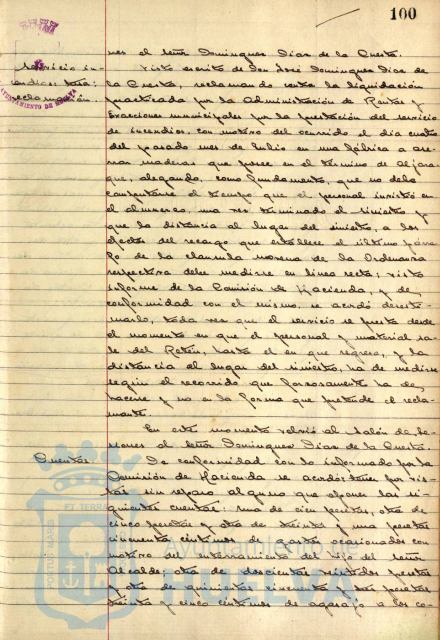 100
nes el señor Dominguez Diaz de la Cuesta.
Servicio in-
cendios:
reclamación.
AYUNTAMIENTO DE HUELVA
Visto escrito de Don José Dominguez Diaz de
la Cuesta, reclamando contra la liquidación
practicada por la Administración de Rentas y
Exacciones municipales por la prestación del servicio
de incendios, con motivo del ocurrido el dia cuatro
del pasado mes de Julio en una fábrica a ase-
rrar maderas que posee en el término de Aljara-
que, alegando, como fundamento, que no debe
computarse el tiempo que el personal invirtió en
el almuerzo, una vez terminado el siniestro y
que la distancia al lugar del siniestro, a los
efectos del recargo que establece el último párra-
fo de la clausula novena de la Ordenanza
respectiva debe medirse en linea recta; visto
informe de la Comisión de Hacienda, y de
conformidad con el mismo, se acordó desesti-
marlo, toda vez que el servicio se presta desde
el momento en que el personal y material sa-
le del Retén, hasta el en que regresa, y la
distancia al lugar del siniestro, ha de medirse
según el recorrido que forzosamente ha de
hacerse y no en la forma que pretende el recla-
mante.
En este momento volvió al Salón de Se-
siones el señor Dominguez Diaz de la Cuesta.
Cuentas
De conformidad con lo informado por la
Comisión de Hacienda se acordó tener por vis-
tas sin reparo alguno que oponer las si-
guientes cuentas: una de cien pesetas, otra de
cinco pesetas y otra de treinta y una pesetas
cincuenta céntimos de gastos ocasionados con
motivo del enterramiento del hijo del señor
Alcalde; otra de doscientas pesetas
y otra de quinientas cincuenta y tres pesetas
treinta y cinco céntimos de agasajo a los co-
PORTUS MARIS
ET TERRAE
Ayuntamiento de
HUELVA